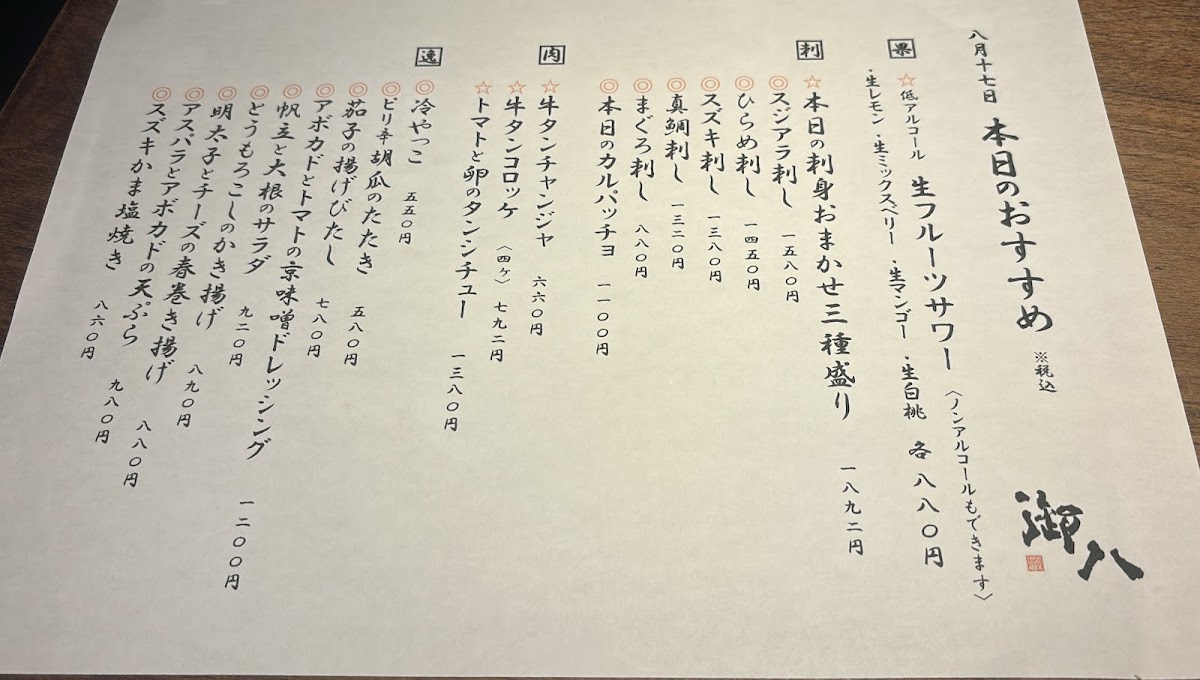 八月十七日 本日のおすすめ ※税込
御八
果
☆低アルコール 生フルーツサワー 〈ノンアルコールもできます〉
・生レモン ・生ミックスベリー ・生マンゴー ・生白桃 各八八〇円
刺
☆本日の刺身おまかせ三種盛り 一八九二円
◎スジアラ刺し 一五八〇円
◎ひらめ刺し 一四五〇円
◎スズキ刺し 一三八〇円
◎真鯛刺し 一三二〇円
◎まぐろ刺し 八八〇円
◎本日のカルパッチョ 一一〇〇円
肉
☆牛タンチャンジャ 六六〇円
☆牛タンコロッケ 〈四ケ〉 七九二円
☆トマトと卵のタンシチュー 一三八〇円
逸
◎冷やっこ 五五〇円
◎ピリ辛胡瓜のたたき 五八〇円
◎茄子の揚げびたし 七八〇円
◎アボカドとトマトの京味噌ドレッシング 一二〇〇円
◎帆立と大根のサラダ 九二〇円
◎とうもろこしのかき揚げ 八九〇円
◎明太子とチーズの春巻き揚げ 八八〇円
◎アスパラとアボカドの天ぷら 九八〇円
◎スズキかま塩焼き 八六〇円